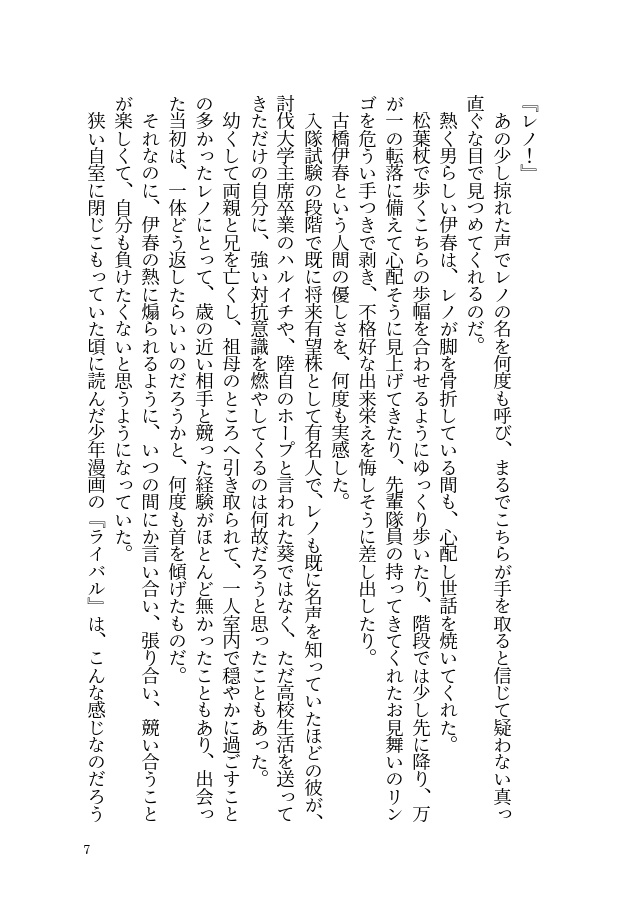 『レノ！』
　あの少し掠れた声でレノの名を何度も呼び、まるでこちらが手を取ると信じて疑わない真っ
直ぐな目で見つめてくれるのだ。
　熱く男らしい伊春は、レノが脚を骨折している間も、心配し世話を焼いてくれた。
　松葉杖で歩くこちらの歩幅を合わせるようにゆっくり歩いたり、階段では少し先に降り、万
が一の転落に備えて心配そうに見上げてきたり、先輩隊員の持ってきてくれたお見舞いのリン
ゴを危うい手つきで剥き、不格好な出来栄えを悔しそうに差し出したり。
　古橋伊春という人間の優しさを、何度も実感した。
　入隊試験の段階で既に将来有望株として有名人で、レノも既に名声を知っていたほどの彼が、
討伐大学主席卒業のハルイチや、陸自のホープと言われた葵ではなく、ただ高校生活を送って
きただけの自分に、強い対抗意識を燃やしてくるのは何故だろうと思ったこともあった。
　幼くして両親と兄を亡くし、祖母のところへ引き取られて、一人室内で穏やかに過ごすこと
の多かったレノにとって、歳の近い相手と競った経験がほとんど無かったこともあり、出会っ
た当初は、一体どう返したらいいのだろうかと、何度も首を傾げたものだ。
　それなのに、伊春の熱に煽られるように、いつの間にか言い合い、張り合い、競い合うこと
が楽しくて、自分も負けたくないと思うようになっていた。
　狭い自室に閉じこもっていた頃に読んだ少年漫画の『ライバル』は、こんな感じなのだろう
7